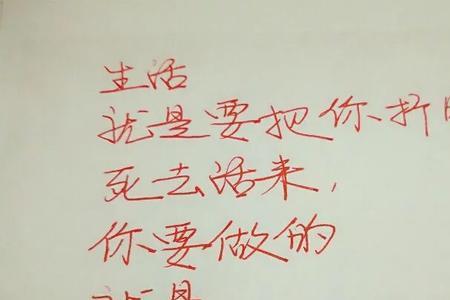 生活
就是要把你折
死去活来，
你要做的
就是